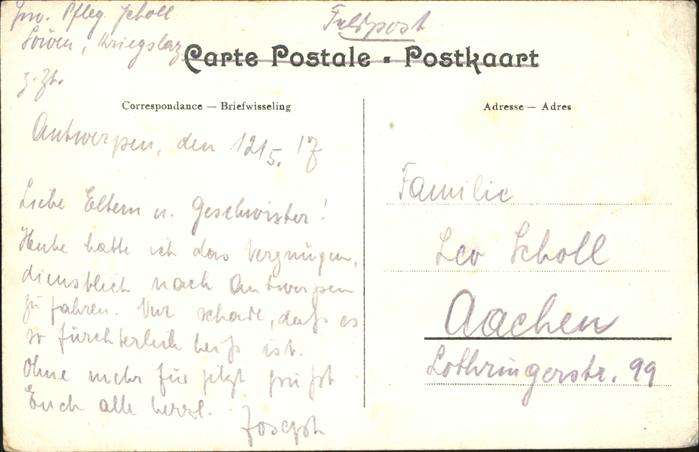 frw. Pfleg. Scholl
Löwen, Kriegslaz.
z. Zt.
Feldpost
Carte Postale - Postkaart
Correspondance — Briefwisseling
Antwerpen, den 12/5. 17
Liebe Eltern u. Geschwister!
Heute hatte ich das Vergnügen,
dienstlich nach Antwerpen
zu fahren. Nur schade, daß es
so fürchterlich heiß ist.
Ohne mehr für jetzt grüßt
Euch alle herzl.
Joseph
Adresse — Adres
Familie
Leo Scholl
Aachen
Lothringerstr. 99